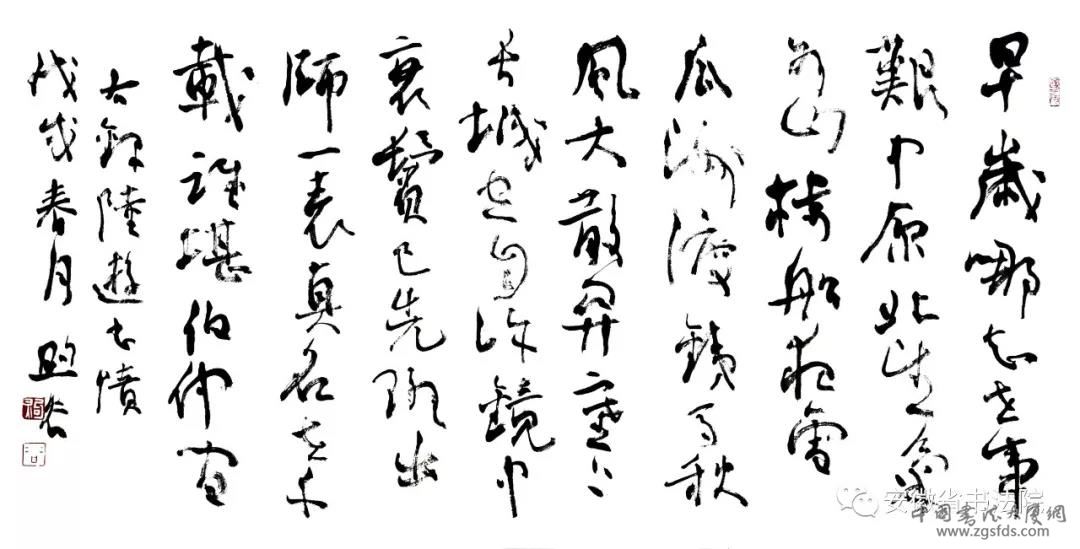 早歲哪知世事
艱中原北望氣
如山樓船夜雪
瓜洲渡鐵馬秋
風大散關塞上
長城空自許鏡中
衰鬢已先斑出
師一表真名世千
載誰堪伯仲間
右錄陸遊書憤
戊戌春月
安徽省书法院
中国書法大厦網
www.zgsfds.com